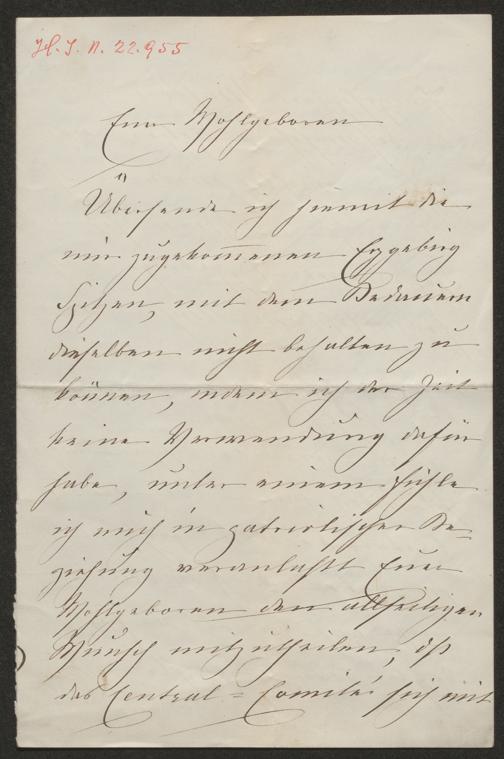 H. I. N. 22.955
Euer Wohlgeboren
Übersende ich hiemit die
mir zugekommenen Erzgebirg
Spitzen, mit dem Bedauern
dieselben nicht behalten zu
können, indem ich der Zeit
keine Verwendung dafür
habe, unter einem fühle
ich mich in patriotischer Be=
ziehung veranlaßt Euer
Wohlgeboren den allseitigen
Wunsch mitzutheilen, daß
das Central=Comité sich mit